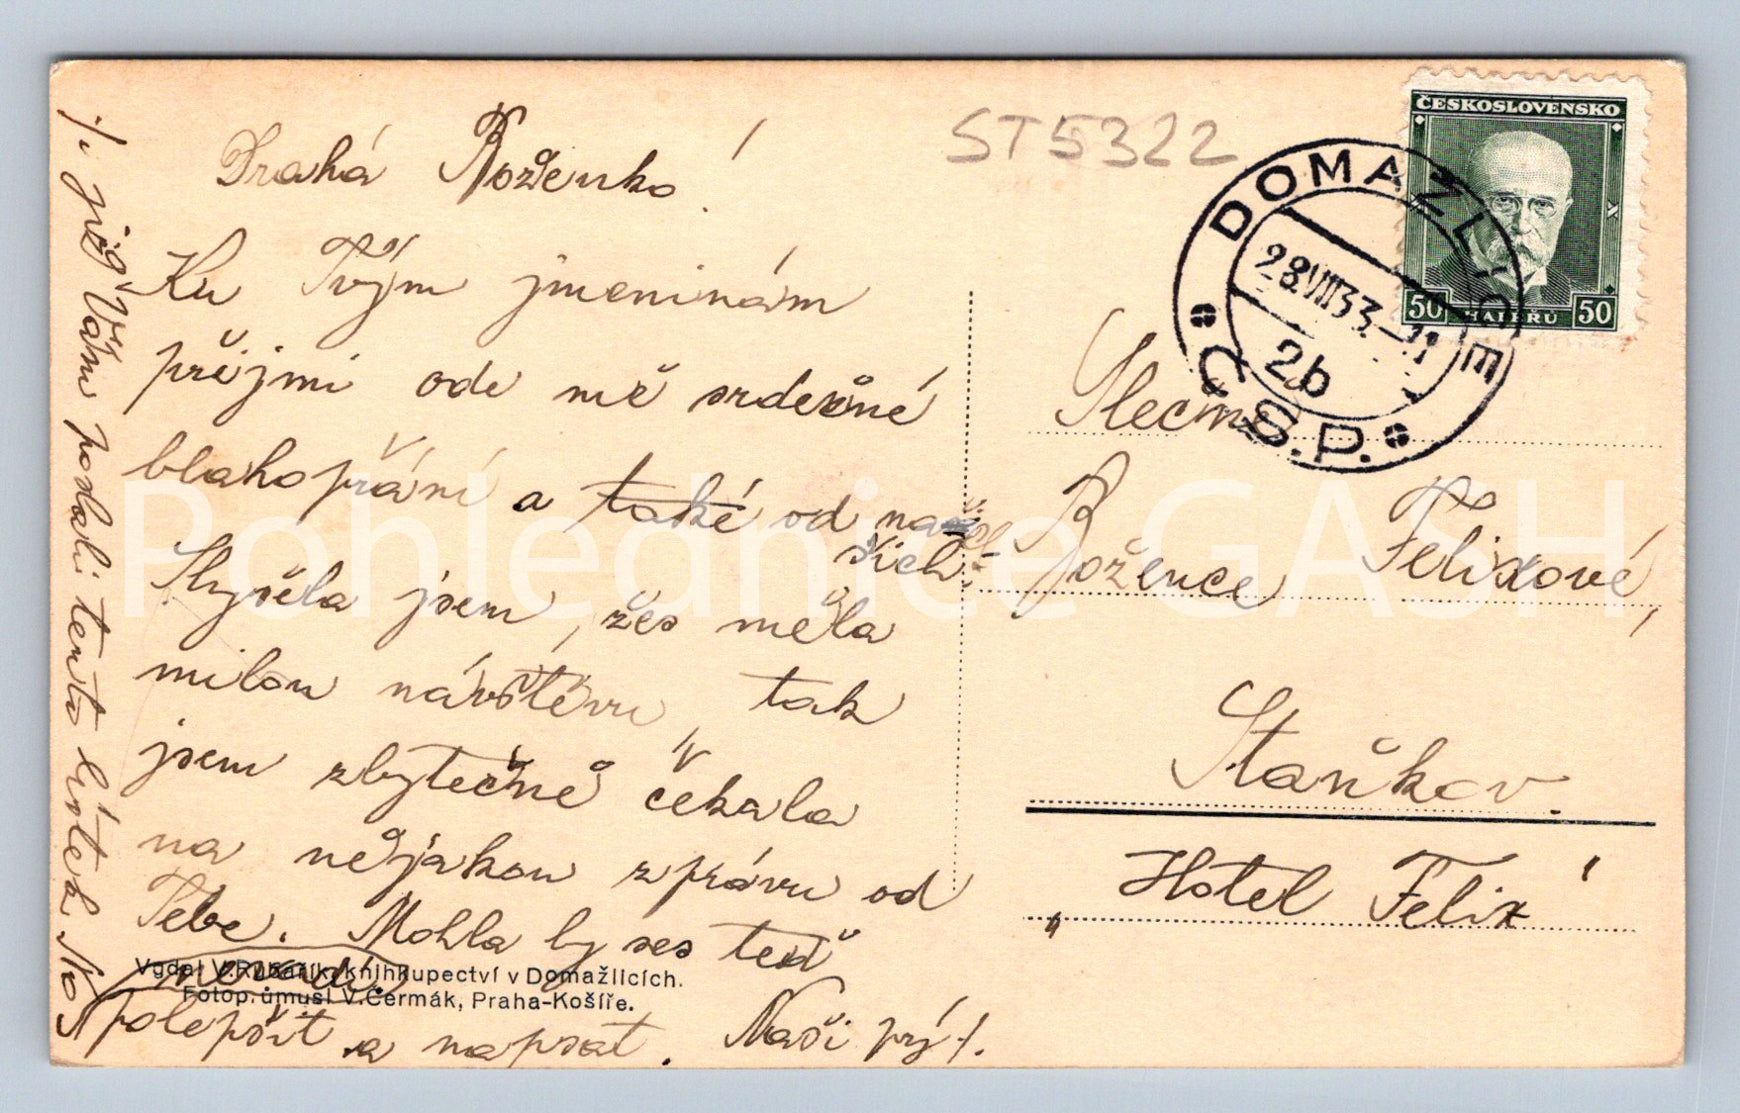 ST5322
ČESKOSLOVENSKO
50 HALÉŘŮ 50
DOMAŽLICE
28.VII.33.-11
2b
Č.S.P.
Drahá Boženko!
Ku Tvým jmeninám
přijmi ode mě srdečné
blahopřání a také od na
šich.
Slyšela jsem, žes měla
milou návštěvu, tak
jsem zbytečně čekala
na nějakou zprávu od
Tebe. Mohla by ses teď
polepšit a napsat. Naši prý
již Vámi poslali tento lístek
Vydal V. Rubařík, knihkupectví v Domažlicích.
Fotop. umusl V. Čermák, Praha-Košíře.
Slečna
Božence Felixové,
Staňkov.
"Hotel Felix"
Pohlednice GASH